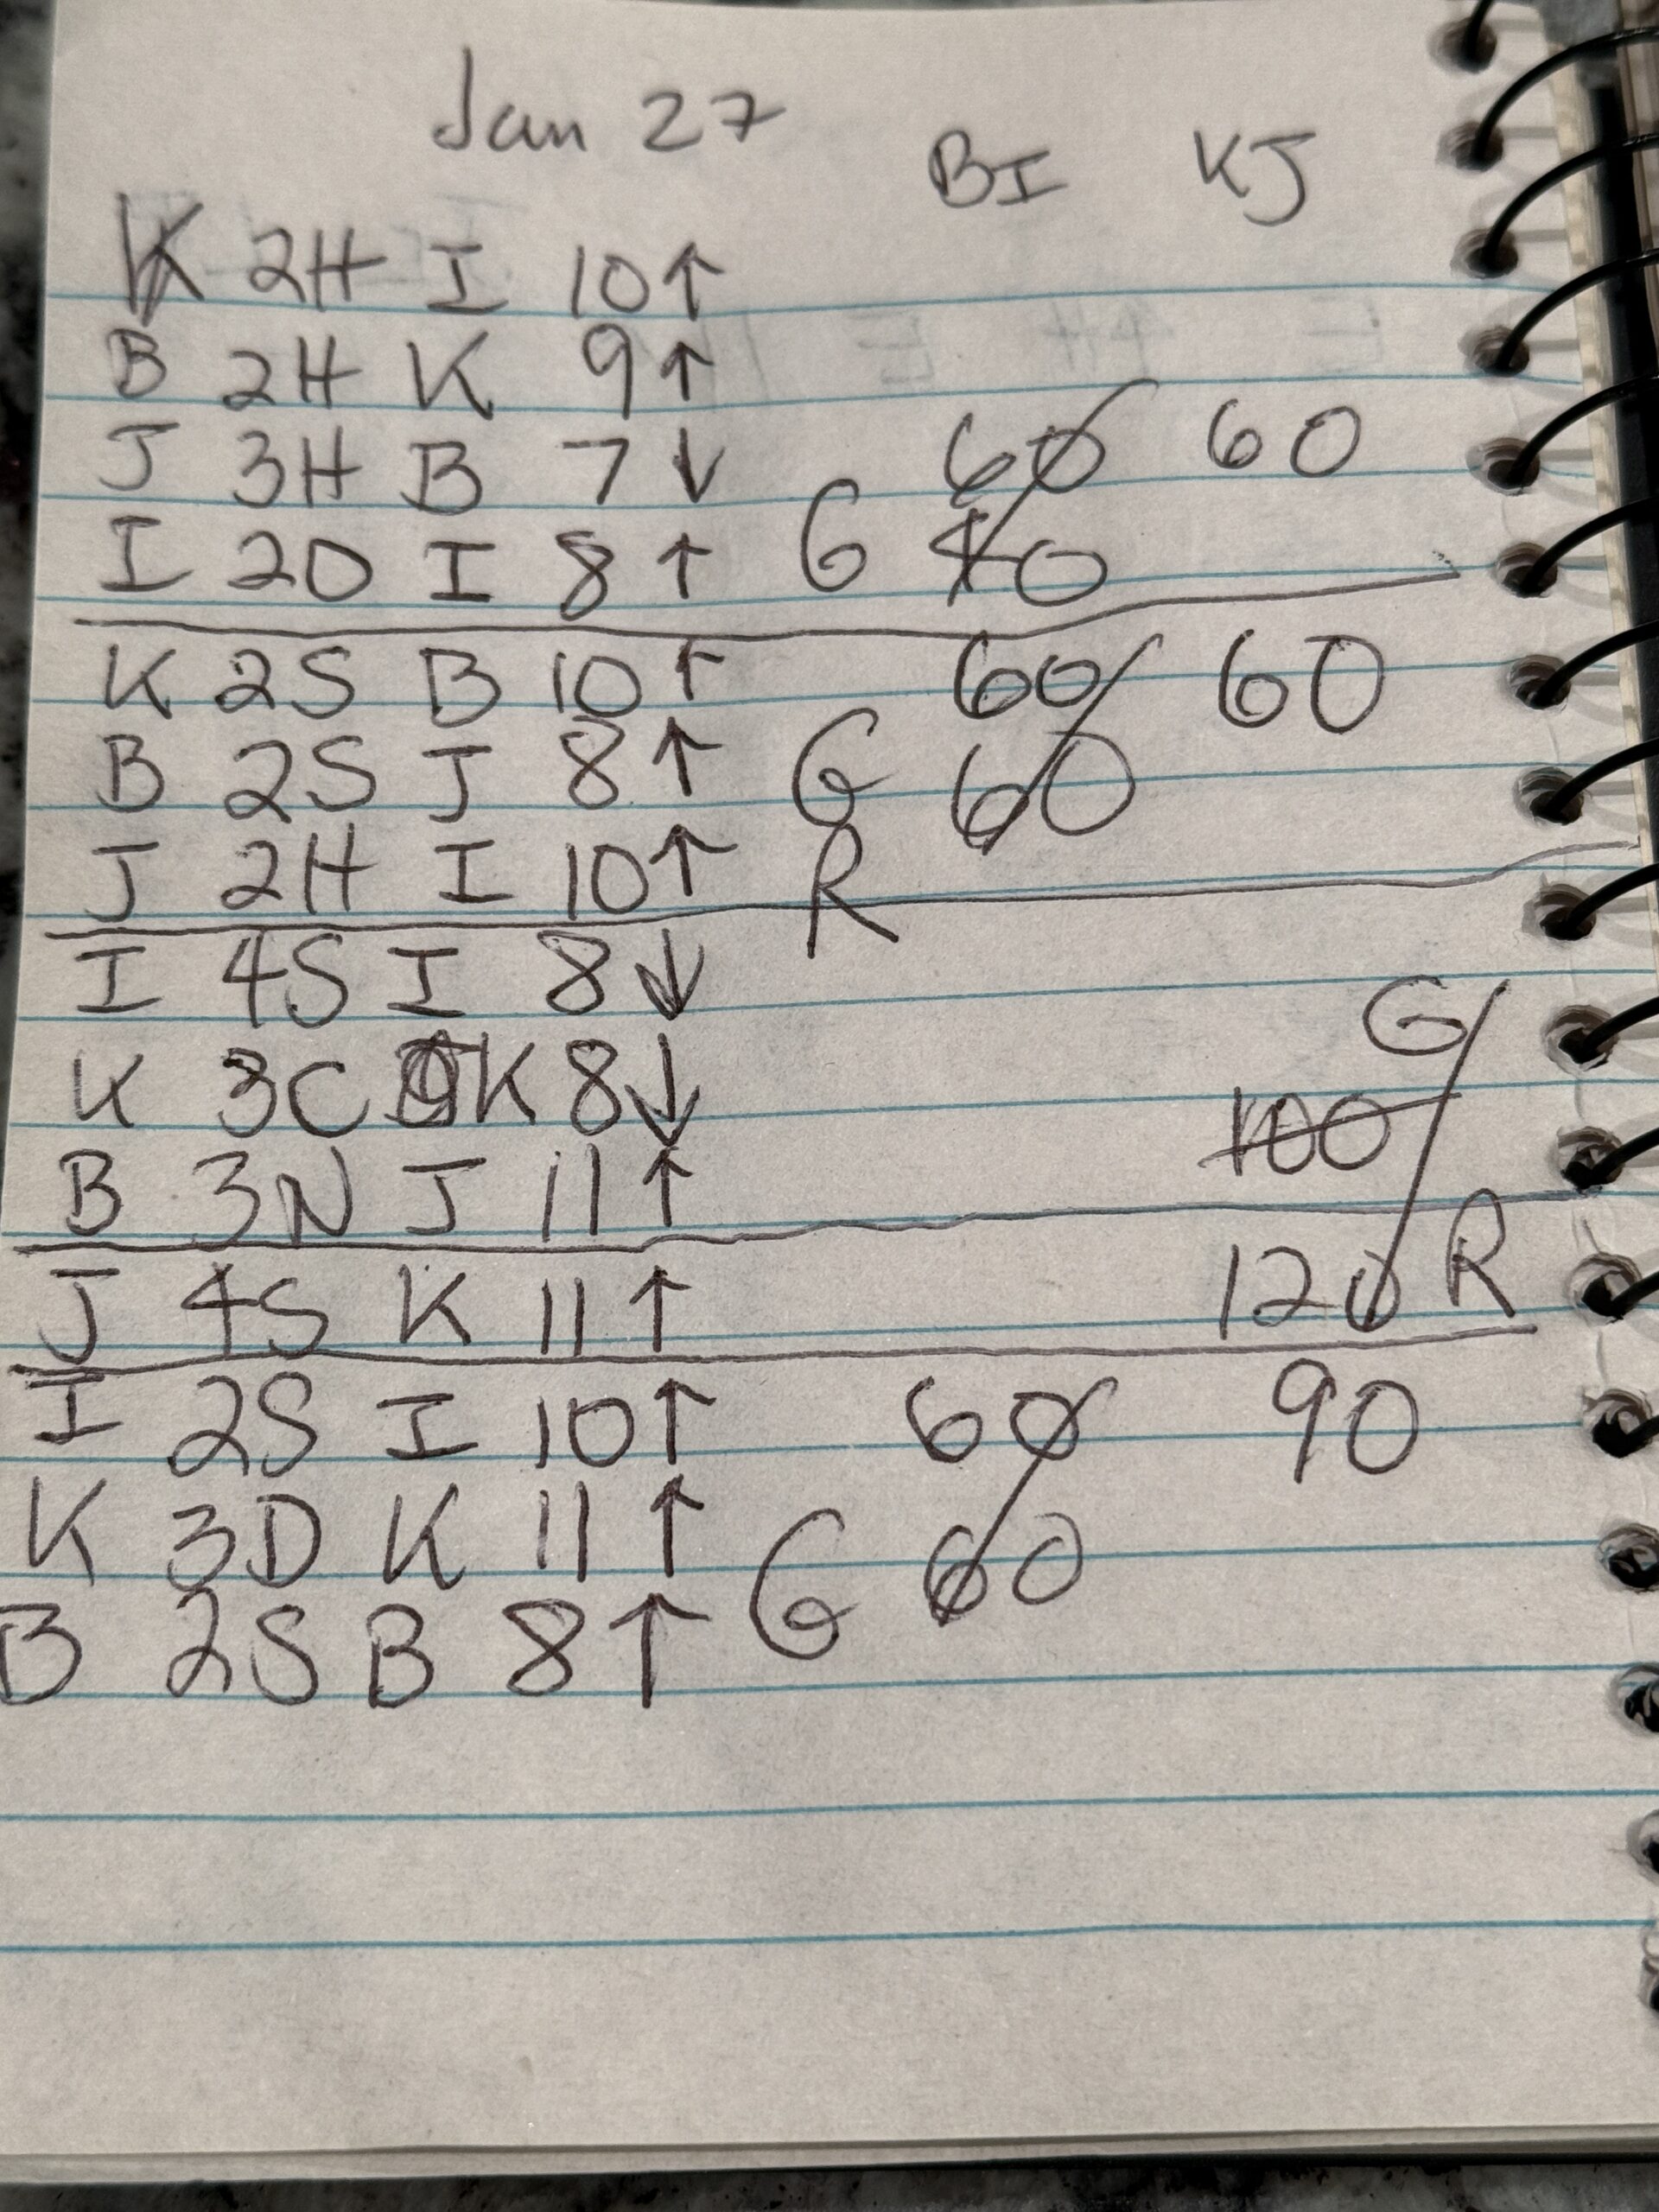 Jan 27
BI KJ
K 2H I 10↑
B 2H K 9↑
J 3H B 7↓ 60 60
I 2D I 8↑ G 40
K 2S B 10↑ 60 60
B 2S J 8↑ G 60
J 2H I 10↑ R
I 4S I 8↓ G
K 3C K 8↓ 100
B 3N J 11↑
J 4S K 11↑ 120 R
I 2S I 10↑ 60 90
K 3D K 11↑
B 2S B 8↑ G 60